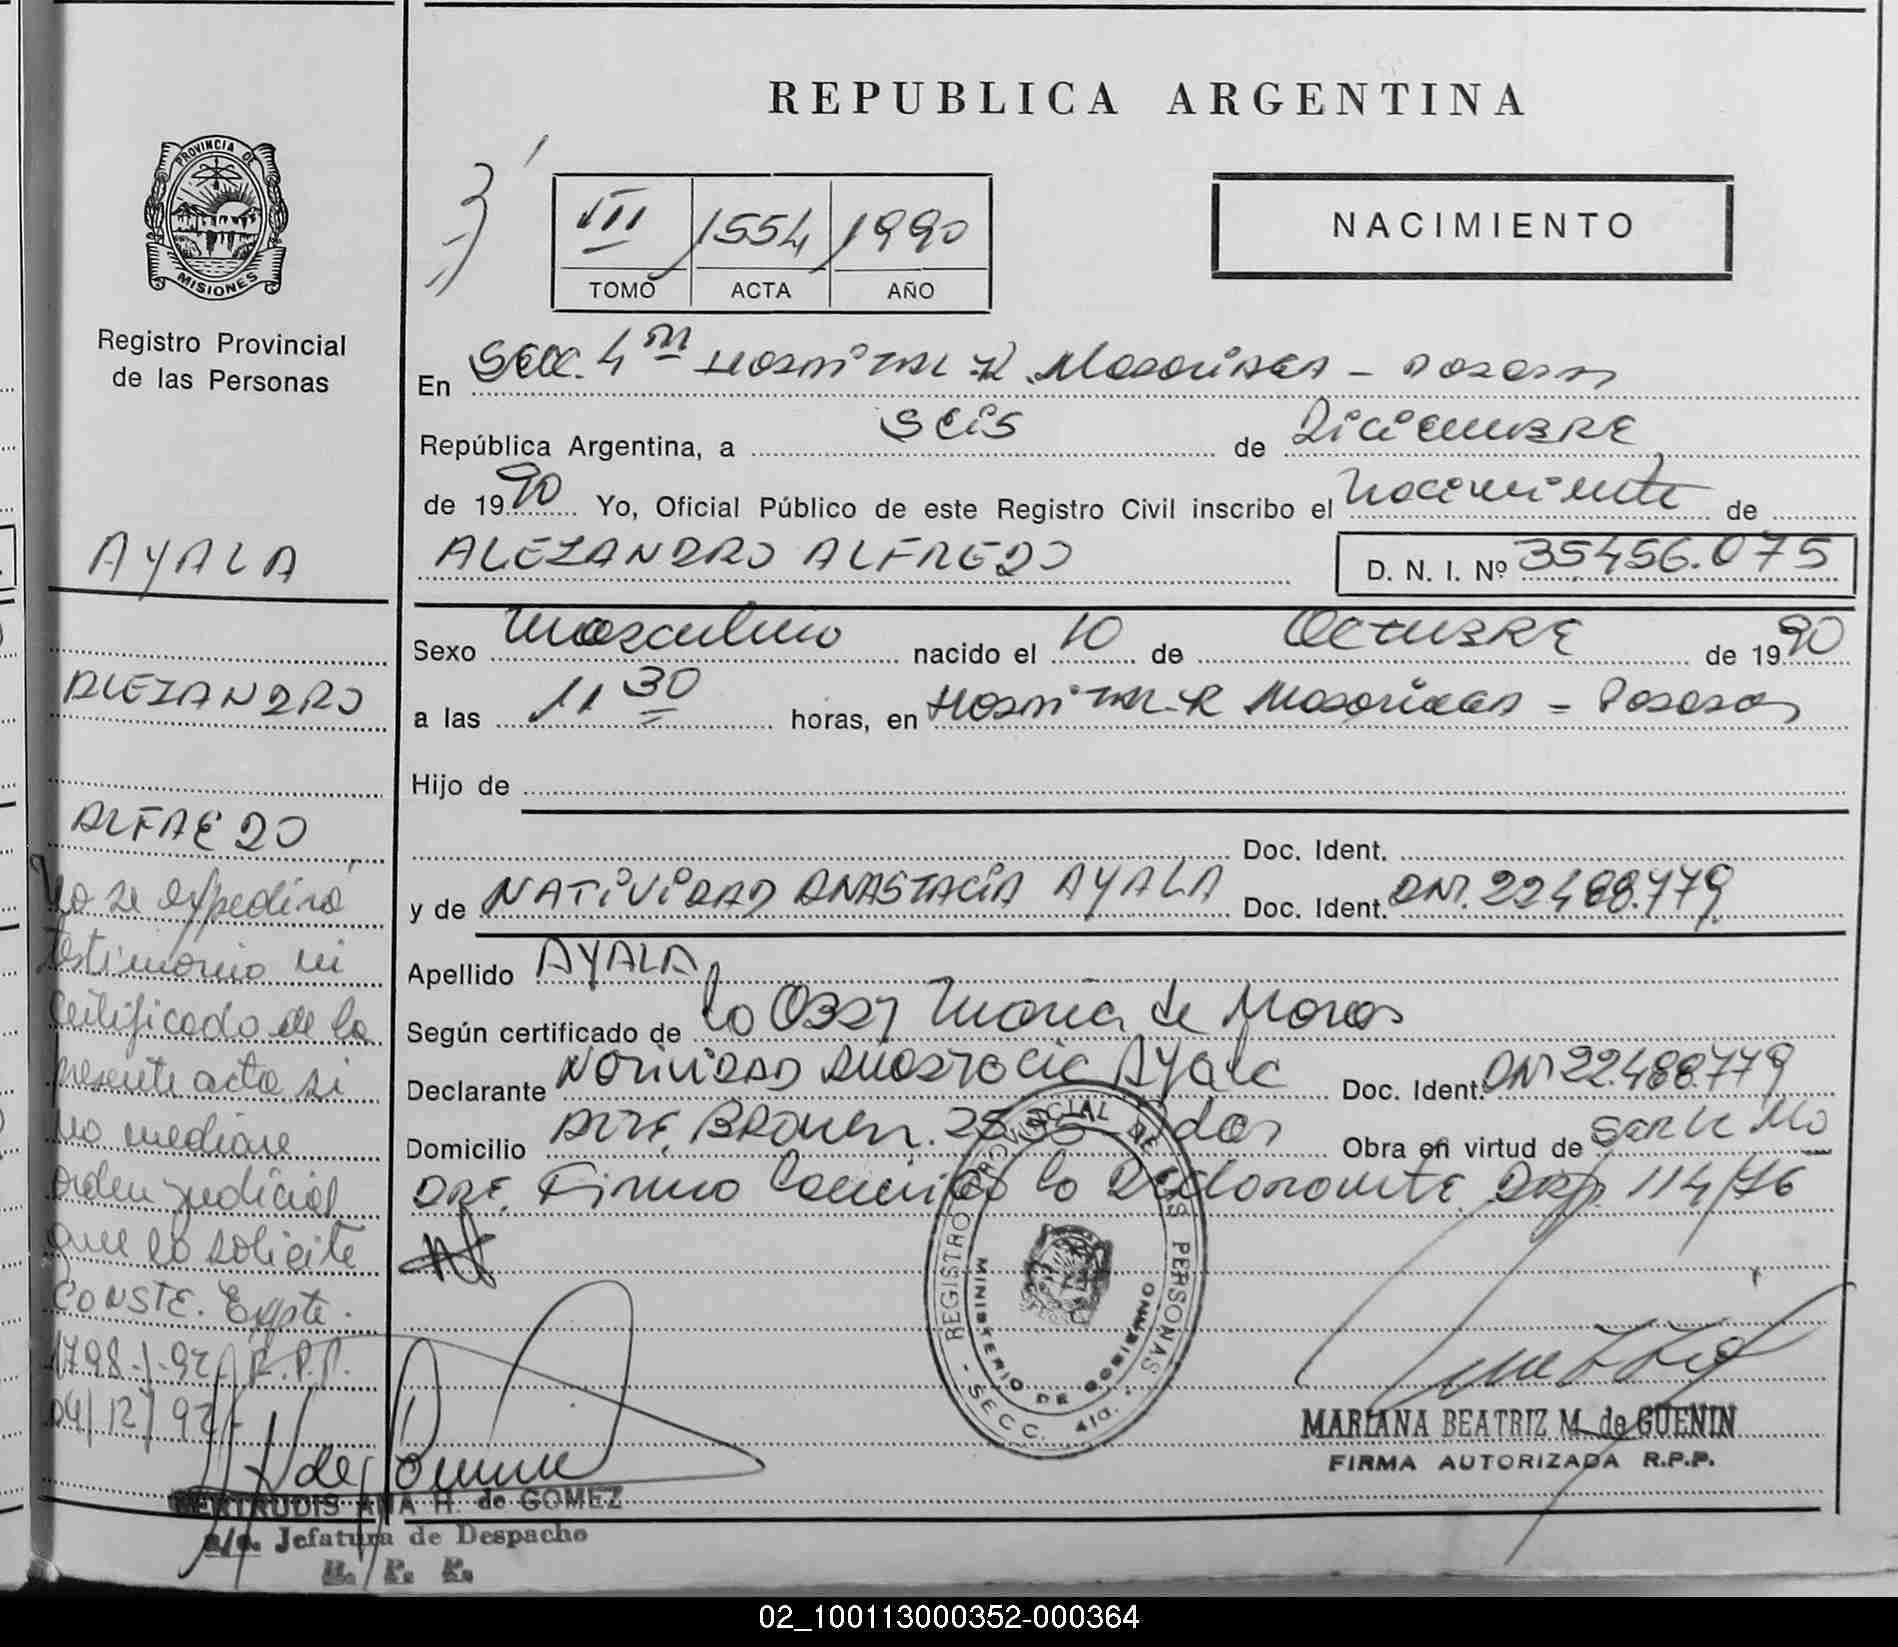 REPUBLICA ARGENTINA
PROVINCIA DE
MISIONES
Registro Provincial
de las Personas
III 1554 1990
TOMO ACTA AÑO
NACIMIENTO
En Secc. 4ta Hospital R. Madariaga - Posadas
República Argentina, a seis de Diciembre
de 1990 Yo, Oficial Público de este Registro Civil inscribo el Nacimiento de
ALEJANDRO ALFREDO D. N. I. Nº 35456.075
Sexo Masculino nacido el 10 de Octubre de 1990
a las 11 30 horas, en Hospital R Madariaga = Posadas
Hijo de
Doc. Ident.
y de NATIVIDAD ANASTACIA AYALA Doc. Ident. DNI. 22488.779
Apellido AYALA
Según certificado de la Obst Maria de Moras
Declarante Natividad Anastacia Ayala Doc. Ident. DNI 22.488.779
Domicilio Alte. Brown. Pdas Obra en virtud de ser la Ma
dre. Firma la Declarante. Disp. 114/76
AYALA
ALEJANDRO
ALFREDO
No se expedirá
testimonio ni
certificado de la
presente acta si
no mediare
orden judicial
que lo solicite
CONSTE. Expte.
1798-/-92/ R.P.P.
04/12/92/-
REGISTRO PROVINCIAL DE LAS PERSONAS
MINISTERIO DE GOBIERNO
- SECC. 4ta. -
MARIANA BEATRIZ M. de GUENIN
FIRMA AUTORIZADA R.P.P.
GERTRUDIS ANA H. de GOMEZ
a/c. Jefatura de Despacho
R. P. P.
02_100113000352-000364